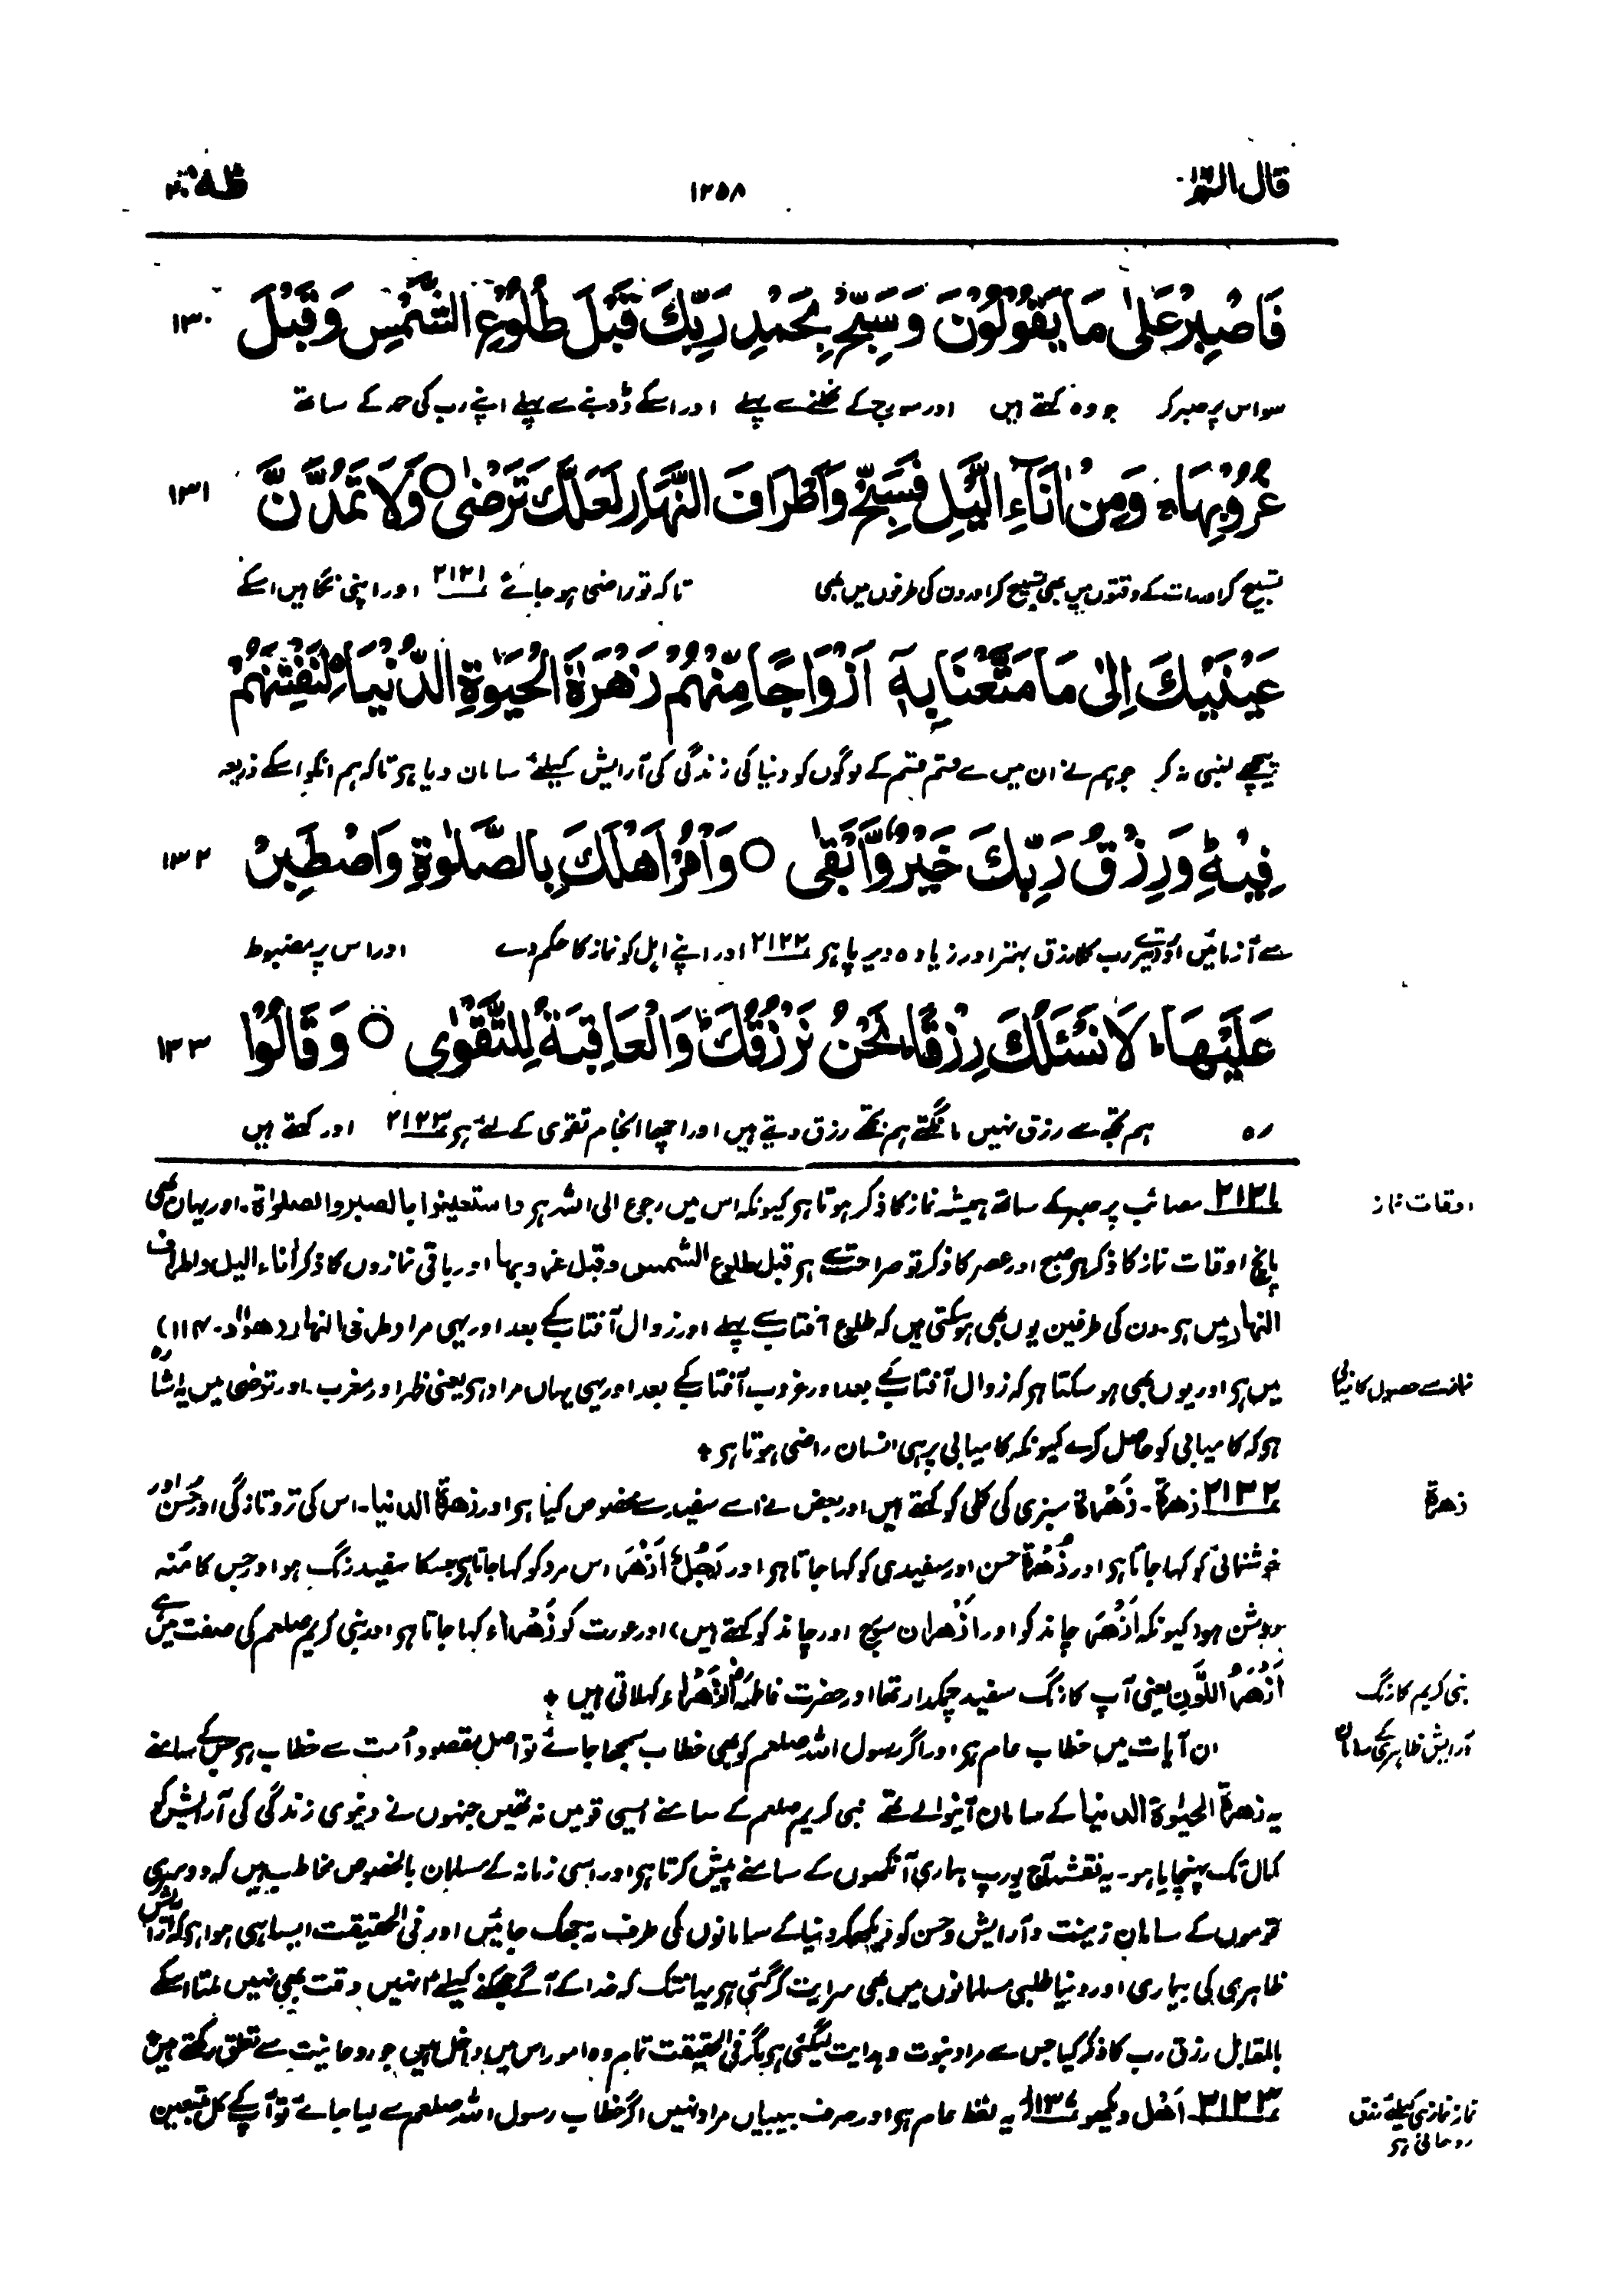 قال الم ۱۶
۱۲۵۸
طٰهٰ ۲۰
فَاصْبِرْ عَلٰى مَا يَقُوْلُوْنَ وَسَبِّحْ بِحَمْدِ رَبِّكَ قَبْلَ طُلُوْعِ الشَّمْسِ وَقَبْلَ ۱۳۰
سو اس پر صبر کر جو وہ کہتے ہیں اور سورج کے نکلنے سے پہلے اور اسکے ڈوبنے سے پہلے اپنے رب کی حمد کے ساتھ
غُرُوْبِهَا ۚ وَمِنْ اٰنَآءِ الَّيْلِ فَسَبِّحْ وَاَطْرَافَ النَّهَارِ لَعَلَّكَ تَرْضٰى ○ وَلَا تَمُدَّنَّ ۱۳۱
تسبیح کر اور رات کے وقتوں میں بھی تسبیح کر اور دن کی طرفوں میں بھی تاکہ تو راضی ہو جائے ۲۱۲۱ اور اپنی نگاہیں اسکے
عَيْنَيْكَ اِلٰى مَا مَتَّعْنَا بِهٖٓ اَزْوَاجًا مِّنْهُمْ زَهْرَةَ الْحَيٰوةِ الدُّنْيَا ۙ لِنَفْتِنَهُمْ
پیچھے لنبی نہ کر جو ہم نے ان میں سے قسم قسم کے لوگوں کو دنیا کی زندگی کی آرایش کیلئے سامان دیا ہے تاکہ ہم انکو اسکے ذریعہ
فِيْهِ ۭ وَرِزْقُ رَبِّكَ خَيْرٌ وَّاَبْقٰى ○ وَاْمُرْ اَهْلَكَ بِالصَّلٰوةِ وَاصْطَبِرْ ۱۳۲
سے آزمائیں اور تیرے رب کا رزق بہتر اور زیادہ دیر پا ہے ۲۱۲۲ اور اپنے اہل کو نماز کا حکم دے اور اس پر مضبوط
عَلَيْهَا ۭ لَا نَسْـَٔلُكَ رِزْقًا ۭ نَحْنُ نَرْزُقُكَ ۭ وَالْعَاقِبَةُ لِلتَّقْوٰى ○ وَقَالُوْا ۱۳۳
رہ ہم تجھ سے رزق نہیں مانگتے ہم تجھے رزق دیتے ہیں اور اچھا انجام تقویٰ کے لئے ہے ۲۱۲۳ اور کہتے ہیں
اوقات نماز
۲۱۲۱ مصائب پر صبر کے ساتھ ہمیشہ نماز کا ذکر ہوتا ہے کیونکہ اس میں رجوع الی اللہ ہے واستعینوا بالصبر والصلوٰة۔ اور یہاں بھی
پانچ اوقات نماز کا ذکر ہے صبح اور عصر کا ذکر تو صراحت سے ہے قبل طلوع الشمس وقبل غروبھا اور باقی نمازوں کا ذکر اٰناء الیل واطراف
النھار میں ہے۔ دن کی طرفین یوں بھی ہو سکتی ہیں کہ طلوع آفتاب سے پہلے اور زوال آفتاب کے بعد اور یہی مراد طرفی النھار (ھود۔ ۱۱۴)
نماز سے حصول کامیابی
میں ہے اور یوں بھی ہو سکتا ہے کہ زوال آفتاب کے بعد اور غروب آفتاب کے بعد اور یہی یہاں مراد ہے یعنی ظہر اور مغرب۔ اور ترضی میں یہ اشارہ
ہے کہ کامیابی کو حاصل کرے کیونکہ کامیابی پر ہی انسان راضی ہوتا ہے +
زھرة
۲۱۲۲ زھرة۔ زَھْرَة سبزی کی کلی کو کہتے ہیں اور بعض نے اسے سفید سے مخصوص کیا ہے اور زھرة الدنیا۔ اس کی تروتازگی اور حُسن اور
خوشنمائی کو کہا جاتا ہے اور زُھْرَة حسن اور سفیدی کو کہا جاتا ہے اور رَجُلٌ اَزْھَر اس مرد کو کہا جاتا ہے جسکا سفید رنگ ہو اور جس کا مُنہ
روشن ہو (کیونکہ اَزْھَر چاند کو اور اَزْھران سورج اور چاند کو کہتے ہیں) اور عورت کو زَھْراء کہا جاتا ہے اور نبی کریم صلعم کی صفت میں ہے
نبی کریم کا رنگ
اَزْھَرُ اللَّون یعنی آپ کا رنگ سفید چمکدار تھا اور حضرت فاطمہؓ الزَّھْراء کہلاتی ہیں +
آرایش ظاہری کے سامان
ان آیات میں خطاب عام ہے اور اگر رسول اللہ صلعم کو بھی خطاب سمجھا جائے تو اصل مقصود اُمت سے خطاب ہے جس کے سامنے
یہ زھرة الحیٰوة الدنیا کے سامان آنیوالے تھے نبی کریم صلعم کے سامنے ایسی قومیں نہ تھیں جنہوں نے دنیوی زندگی کی آرایش کو
کمال تک پہنچایا ہو۔ یہ نقشہ آج یورپ ہماری آنکھوں کے سامنے پیش کرتا ہے اور اسی زمانہ کے مسلمان بالخصوص مخاطب ہیں کہ دوسری
قوموں کے سامان زینت و آرایش و حسن کو دیکھ کر دنیا کے سامانوں کی طرف نہ جھک جائیں اور فی الحقیقت ایسا ہی ہوا ہے کہ آرایش
ظاہری کی بیماری اور دنیا طلبی مسلمانوں میں بھی سرایت کر گئی ہے یہانتک کہ خدا کے آگے جھکنے کیلئے انہیں وقت بھی نہیں ملتا اسکے
بالمقابل رزق رب کا ذکر کیا جس سے مراد نبوت و ہدایت لی گئی ہے مگر فی الحقیقت تمام وہ امور اس میں داخل ہیں جو روحانیت سے تعلق رکھتے ہیں +
نماز نمازی کیلئے رزق
روحانی ہے
۲۱۲۳ اَھْل دیکھو یہ لفظ عام ہے اور صرف بیبیاں مراد نہیں اگر خطاب رسول اللہ صلعم سے لیا جائے تو آپ کے کل متبعین